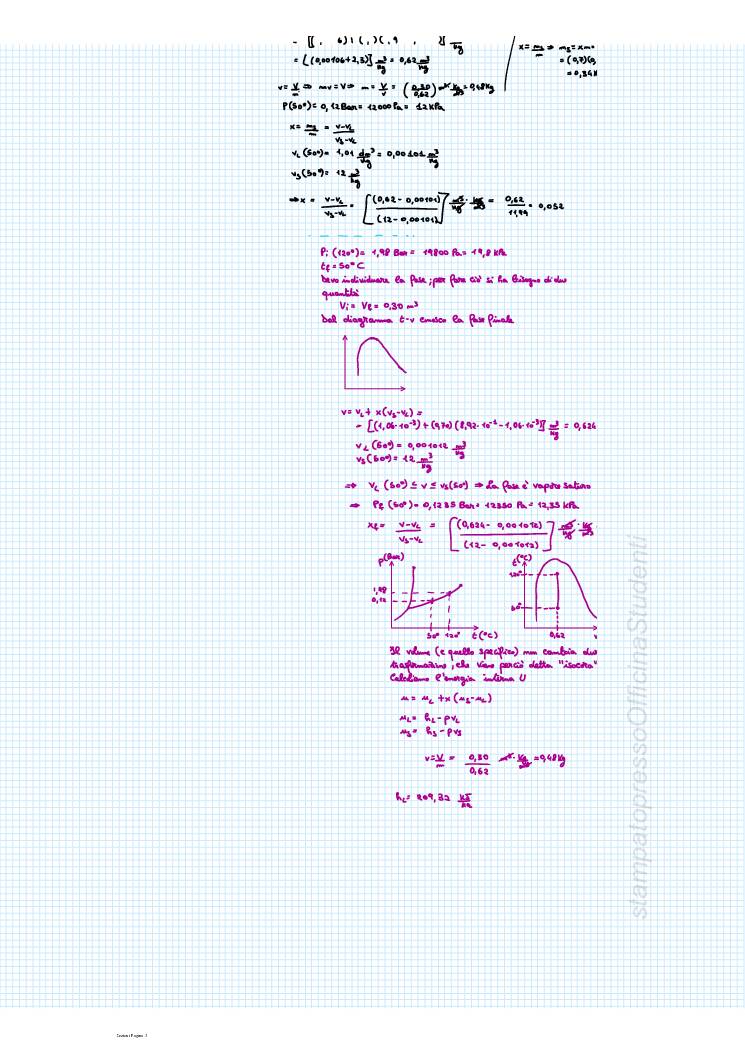 = [(0,00106+2,3)] m³/kg = 0,62 m³/kg
x = ms/m ⇒ ms = xm
= (0,7)(0,
= 0,34K
v = V/m ⇒ mv = V ⇒ m = V/v = (0,30/0,62) m³·kg/m³ = 0,48 kg
P(50°) = 0,12 Bar = 12000 Pa = 12 kPa
x = ms/m = (v-vL)/(vs-vL)
vL(50°) = 1,01 dm³/kg = 0,00101 m³/kg
vs(50°) = 12 m³/kg
⇒ x = (v-vL)/(vs-vL) = [(0,62 - 0,00101)/(12 - 0,00101)] m³/kg · kg/m³ = 0,62/11,99 = 0,052
Pi (120°) = 1,98 Bar = 19800 Pa = 19,8 kPa
tf = 50° C
Devo individuare la fase; per fare ciò si ha bisogno di due
quantità
Vi = Vf = 0,30 m³
Dal diagramma t-v conosco la fase finale
v = vL + x(vs-vL) =
= [(1,06·10⁻³) + (0,70)(8,92·10⁻¹ - 1,06·10⁻³)] m³/kg = 0,624
vL(50°) = 0,001012 m³/kg
vs(50°) = 12 m³/kg
⇒ vL (50°) ≤ v ≤ vs(50°) ⇒ La fase è vapore saturo
⇒ Pf (50°) = 0,1235 Bar = 12350 Pa = 12,35 kPa
xf = (v-vL)/(vs-vL) = [(0,624 - 0,001012)/(12 - 0,001012)] m³/kg · kg/m³
P(Bar)
t(°C)
1,98
120°
0,12
50°
50° 120° t(°C)
0,62
v
Il volume (e quello specifico) non cambia
trasformazione, che viene perciò detta "isocora"
Calcoliamo l'energia interna U
u = uL + x(us-uL)
uL = hL - pvL
us = hs - pvs
v = V/m = 0,30/0,62 m³·kg/m³ = 0,48 kg
hL = 209,32 kJ/kg
stampatopressoOfficinaStudenti